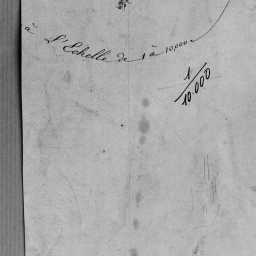 à l'Echelle de 1 à 10,000.
1/10.000